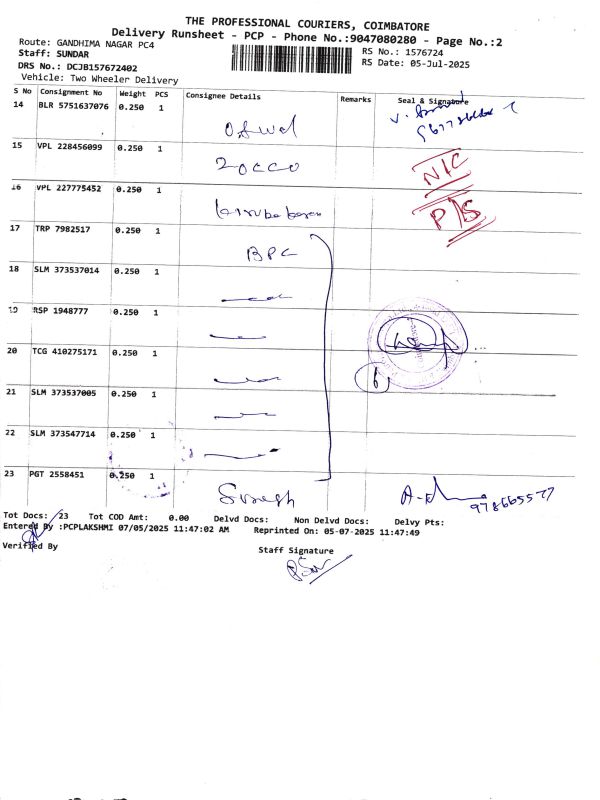 THE PROFESSIONAL COURIERS, COIMBATORE
Delivery Runsheet - PCP - Phone No.:9047080280 - Page No.:2
Route: GANDHIMA NAGAR PC4 RS No.: 1576724
Staff: SUNDAR RS Date: 05-Jul-2025
DRS No.: DCJB157672402
Vehicle: Two Wheeler Delivery
S No Consignment No Weight PCS Consignee Details Remarks Seal & Signature
14 BLR 5751637076 0.250 1
15 VPL 228456099 0.250 1 N/C
16 VPL 227775452 0.250 1 P/S
17 TRP 7982517 0.250 1 BPC
18 SLM 373537014 0.250 1
19 RSP 1948777 0.250 1
20 TCG 410275171 0.250 1 6
21 SLM 373537005 0.250 1
22 SLM 373547714 0.250 1
23 PGT 2558451 0.250 1 Suresh
Tot Docs: 23 Tot COD Amt: 0.00 Delvd Docs: Non Delvd Docs: Delvy Pts:
Entered By :PCPLAKSHMI 07/05/2025 11:47:02 AM Reprinted On: 05-07-2025 11:47:49
Verified By Staff Signature